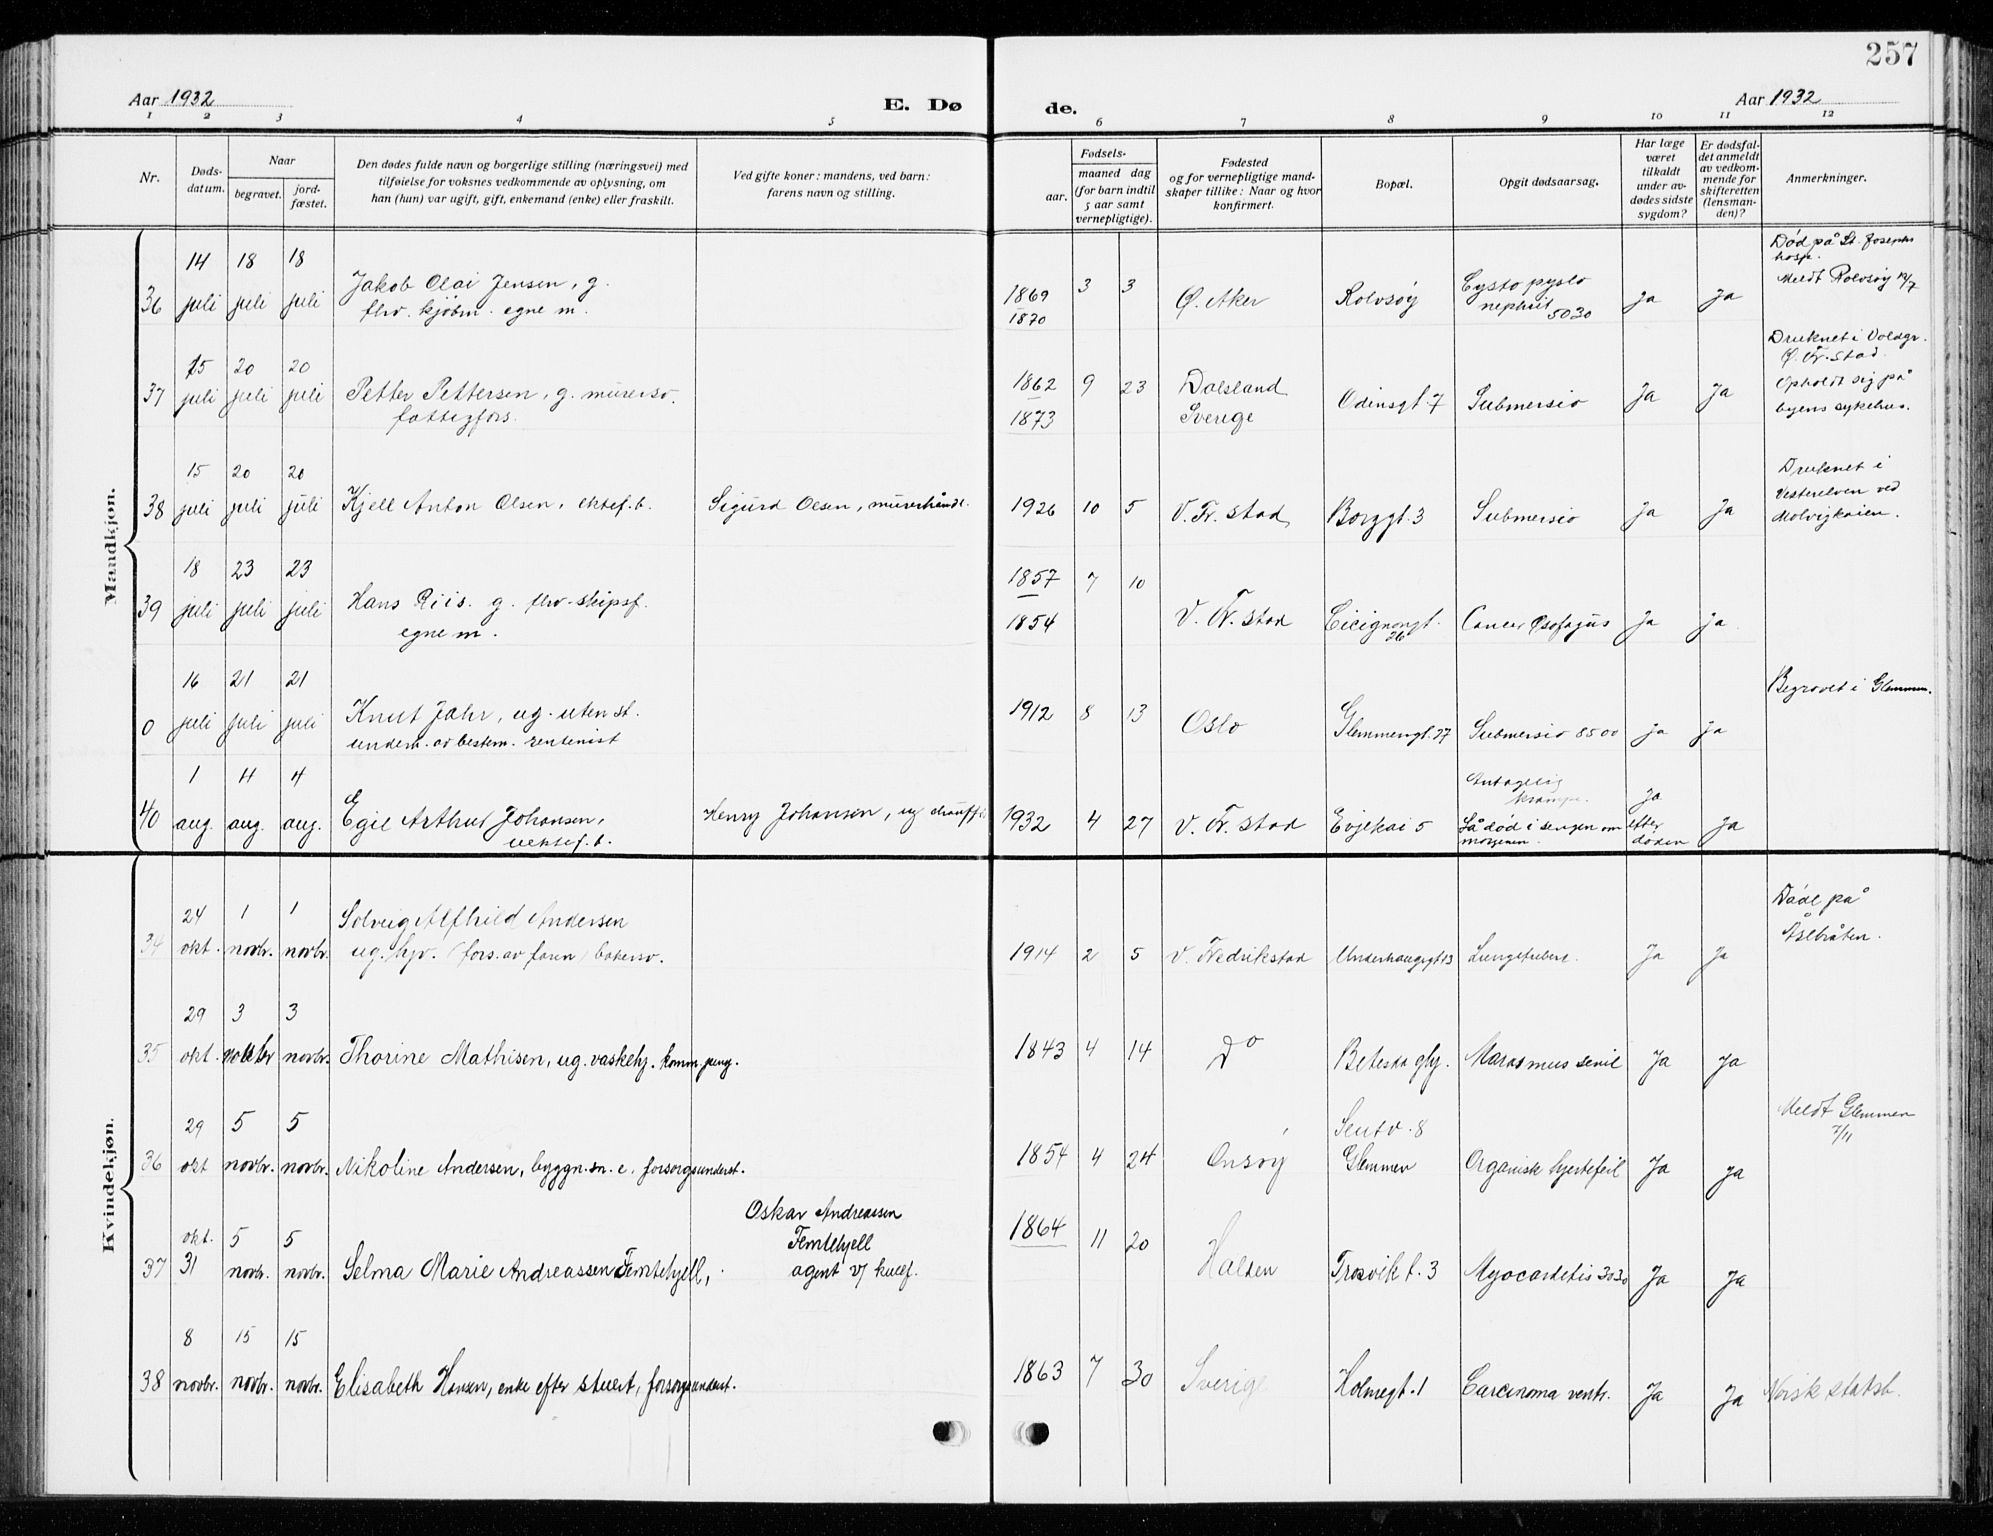 257
Aar 1932
E. Dø de.
Aar 1932
1 2 3 3 4 5 6 7 8 9 10 11 12
Nr.
Døds-
datum.
Naar
begravet.
jord-
fæstet.
Den dødes fulde navn og borgerlige stilling (næringsvei) med
tilføielse for voksnes vedkommende av oplysning, om
han (hun) var ugift, gift, enkemand (enke) eller fraskilt.
Ved gifte koner: mandens, ved barn:
farens navn og stilling.
Fødsels-
aar.
maaned dag
(for barn indtil
5 aar samt
vernepligtige).
Fødested
og for vernepligtige mand-
skaper tillike: Naar og hvor
konfirmert.
Bopæl.
Opgit dødsaarsag.
Har læge
været
tilkaldt
under av-
dødes sidste
sygdom?
Er dødsfal-
det anmeldt
av vedkom-
mende for
skifteretten
(lensman-
den)?
Anmerkninger.
Mandkjøn.
36
14 juli
18 juli
18 juli
Jakob Olai Jensen, g.
fhv. kjøbm. egne m.
1869
1870
3 3
Ø. Aker
Rolvsøy
Cystopyelo
nephrit
5030
Ja
Ja
Død på St. Josephs
hosp.
Meldt Rolvsøy
37
15 juli
20 juli
20 juli
Petter Pettersen, g. murersv.
fattigfors.
1862
1873
9 23
Dalsland
Sverige
Odinsgt. 7
Submersio
Ja
Ja
Druknet i Voldgr.
Ø. Fr. stad.
Opholdt sig på
byens sykehus.
38
15 juli
20 juli
20 juli
Kjell Anton Olsen, ektef. b.
Sigurd Olsen, murerhåndl.
1926 10 5
V. Fr. stad
Borggt. 3
Submersio
Ja
Ja
Druknet i
Vesterelven ved
Molvigkaien.
39
18 juli
23 juli
23 juli
Hans Riis. g. fhv. skipsf.
egne m.
1857
1854
7 10
V. Fr. stad
Cicignongt.
26
Cancer Øsofagus
Ja
ja
0
16 juli
21 juli
21 juli
Knut Jahr, ug. uten st.
underh. av bestem. rentenist
1912 8 13
Oslo
Glemmengt. 27
Submersio 8500
ja
ja
Begravet i Glemmen.
40
1 aug.
4 aug.
4 aug.
Egil Arthur Johansen,
uektef. b.
Henry Johansen, ug chauff
1932 4 27
V. Fr. stad
Evjekai 5
Antagelig
krampe.
Lå død i sengen om
morgenen.
Ja
efter
døden
Ja
Kvindekjøn.
34
24 okt.
1 novbr.
1 novbr.
Solveig Alfhild Andersen
ug. hjv. (fors. av faren) bakersv.
1914 2 5
V. Fredrikstad
Underhaugsgt 13
Lungetuberk.
Ja
Ja
Døde på
Åslbråten.
35
29 okt.
3 novbr
3 novbr.
Thorine Mathisen, ug. vaskehj. komm. peng.
1843 4 14
Do
Betesda glhj.
Marasmus senil
Ja
Ja
36
29 okt
5 novbr.
5 novbr.
Nikoline Andersen, byggn. sn. e. forsorgsunderst.
1854 4 24
Onsøy
Sentv. 8
Glemmen
Organisk hjertefeil
Ja
Ja
Meldt Glemmen
7/11
37
okt. 31
5 novbr.
5 novbr.
Selma Marie Andreassen Femtehjell,
Oskar Andreassen
Femtehjell
agent v/ kullf.
1864 11 20
Halden
Trosvik t. 3
Myocarditis 3030
Ja
Ja
38
8 novbr.
15 novbr.
15 novbr.
Elisabeth Hansen, enke efter stuert, forsorgsunderst.
1863 7 30
Sverige
Holmegt. 1
Carcinoma ventr.
Ja
Ja
Norsk statsb.